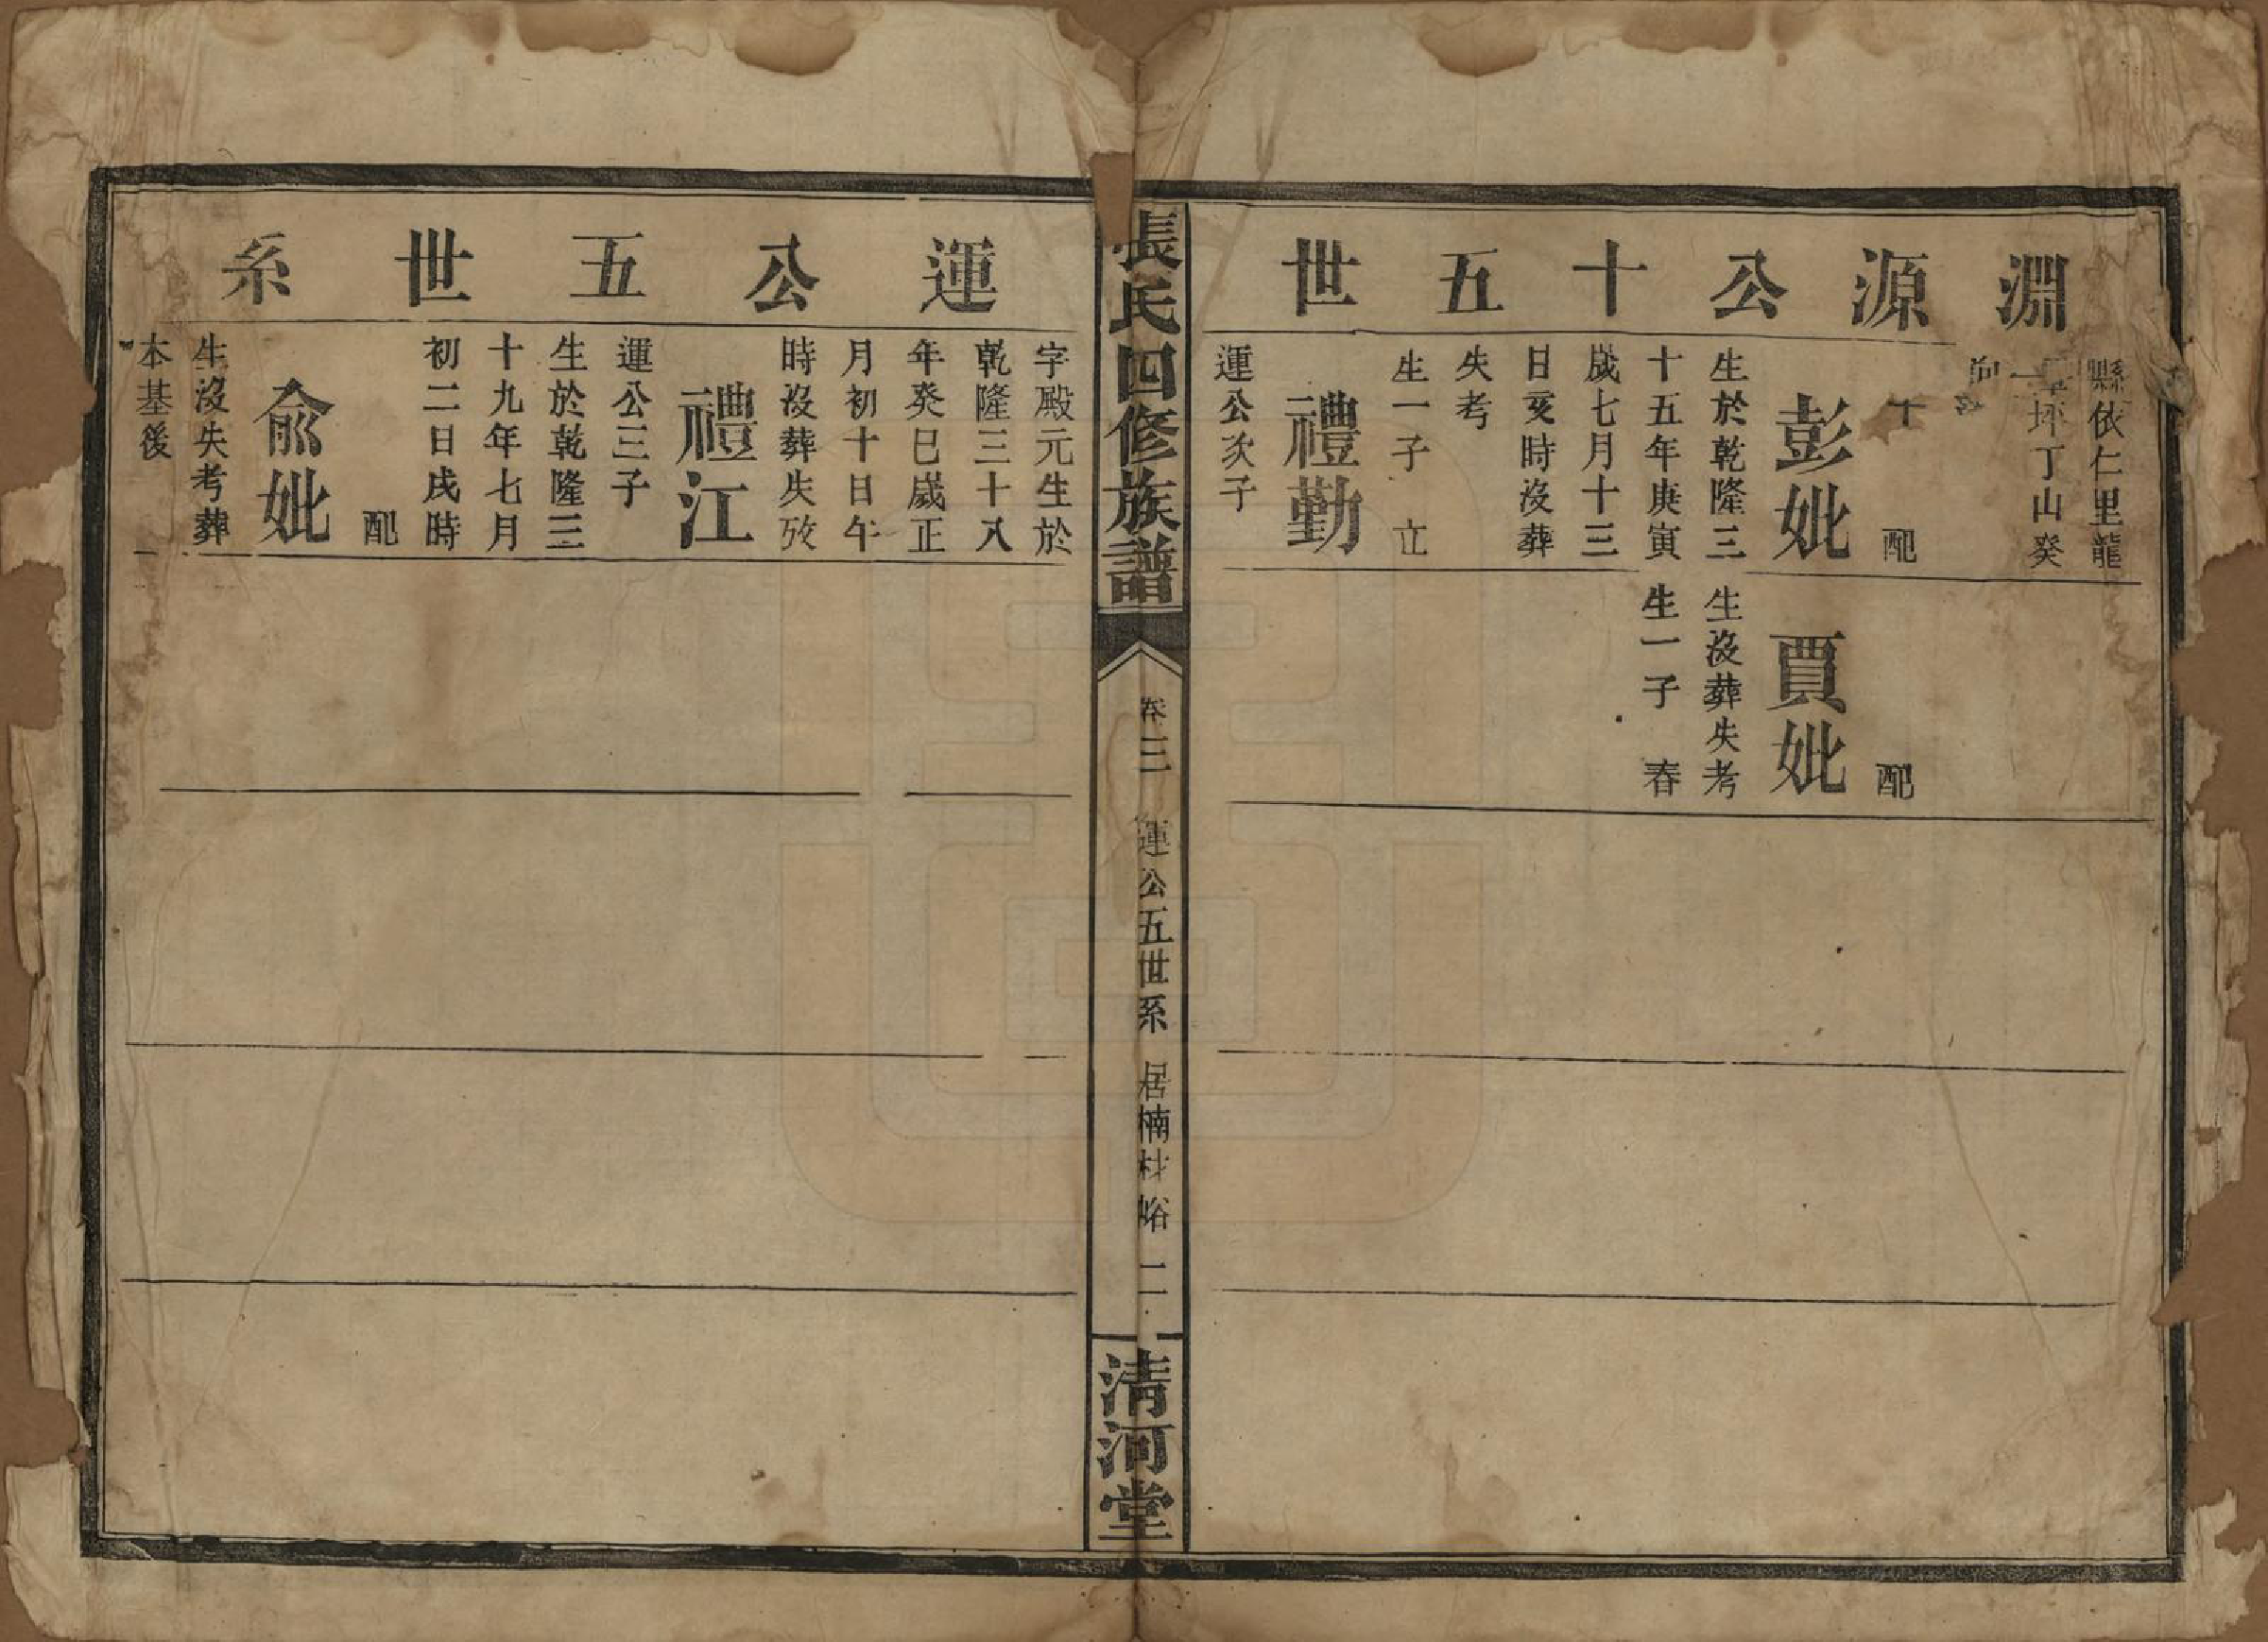 淵源公十五世
縣依仁里龍
坪丁山癸
向
配
彭妣
生於乾隆三
十五年庚寅
歲七月十三
日亥時沒葬
失考
生一子 立
配
賈妣
生沒葬失考
生一子 春
禮勤
運公次子
張氏四修族譜
卷三 運公五世系 居楠材峪 二
清河堂
運公五世系
字殿元生於
乾隆三十八
年癸巳歲正
月初十日午
時沒葬失攷
禮江
運公三子
生於乾隆三
十九年七月
初二日戌時
配
俞妣
生沒失考葬
本基後